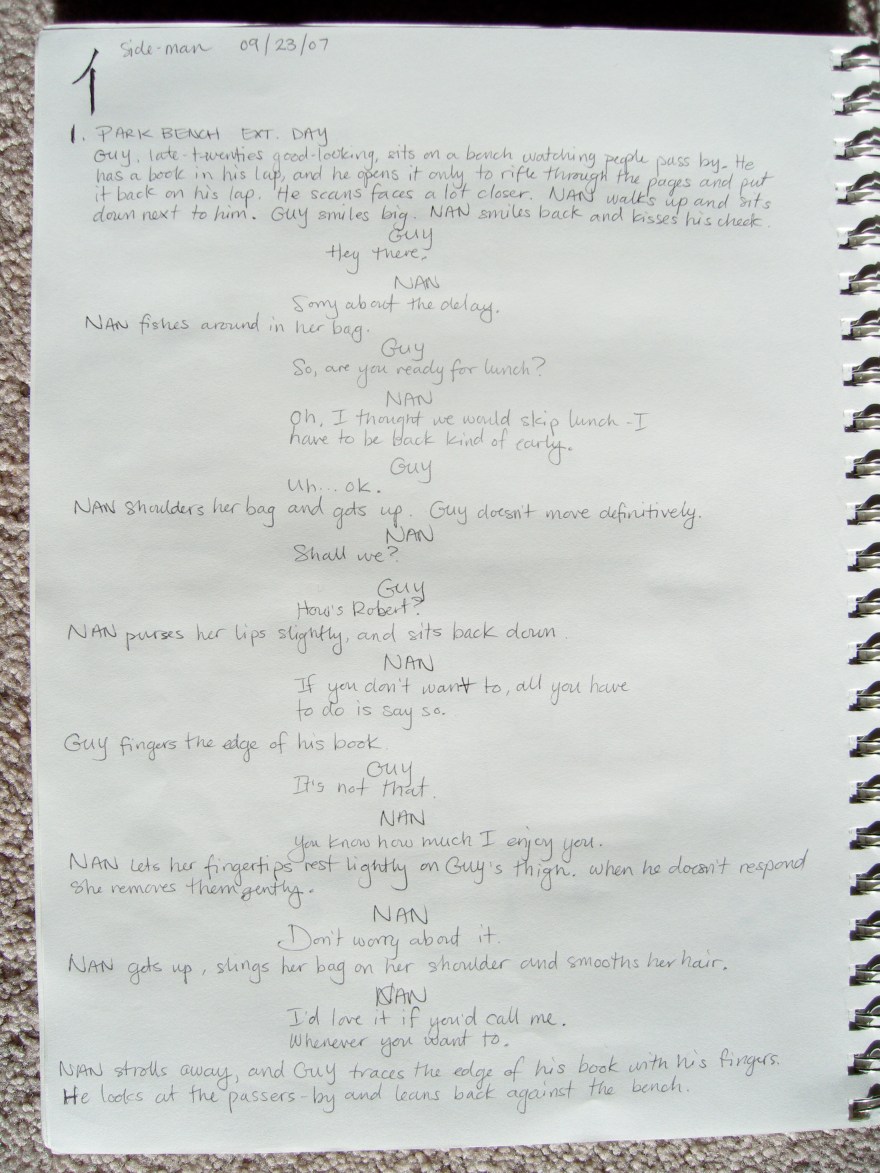 Side-man 09/23/07
1
1. PARK BENCH EXT. DAY
Guy, late-twenties good-looking, sits on a bench watching people pass by. He
has a book in his lap, and he opens it only to rifle through the pages and put
it back on his lap. He scans faces a lot closer. NAN walks up and sits
down next to him. Guy smiles big. NAN smiles back and kisses his cheek.
Guy
Hey there.
NAN
Sorry about the delay.
NAN fishes around in her bag.
Guy
So, are you ready for lunch?
NAN
Oh, I thought we would skip lunch - I
have to be back kind of early.
Guy
Uh... ok.
NAN shoulders her bag and gets up. Guy doesn't move definitively.
NAN
Shall we?
Guy
How's Robert?
NAN purses her lips slightly, and sits back down.
NAN
If you don't want to, all you have
to do is say so.
Guy fingers the edge of his book.
Guy
It's not that.
NAN
You know how much I enjoy you.
NAN lets her fingertips rest lightly on Guy's thigh. When he doesn't respond
she removes them gently.
NAN
Don't worry about it.
NAN gets up, slings her bag on her shoulder and smooths her hair.
NAN
I'd love it if you'd call me.
Whenever you want to.
NAN strolls away, and Guy traces the edge of his book with his fingers.
He looks at the passers-by and leans back against the bench.